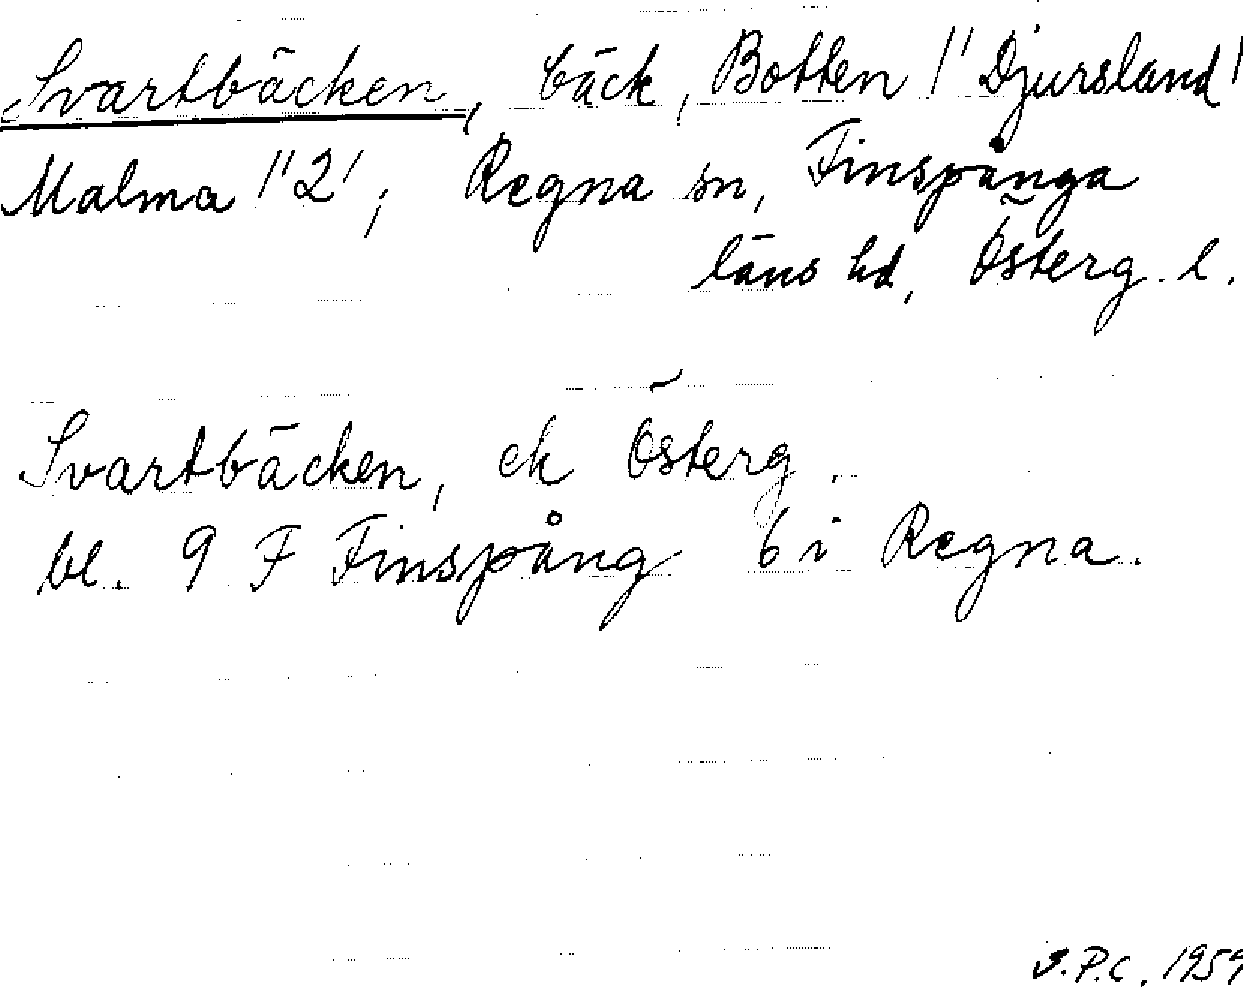 Svartbäcken, bäck, Botten 1"Djursland'
Malma 1"2', Regna sn, Finspånga
läns hd, Österg. l.
Svartbäcken, ek Österg.
bl. 9 F Finspång 6 i Regna.
P.C. 1959